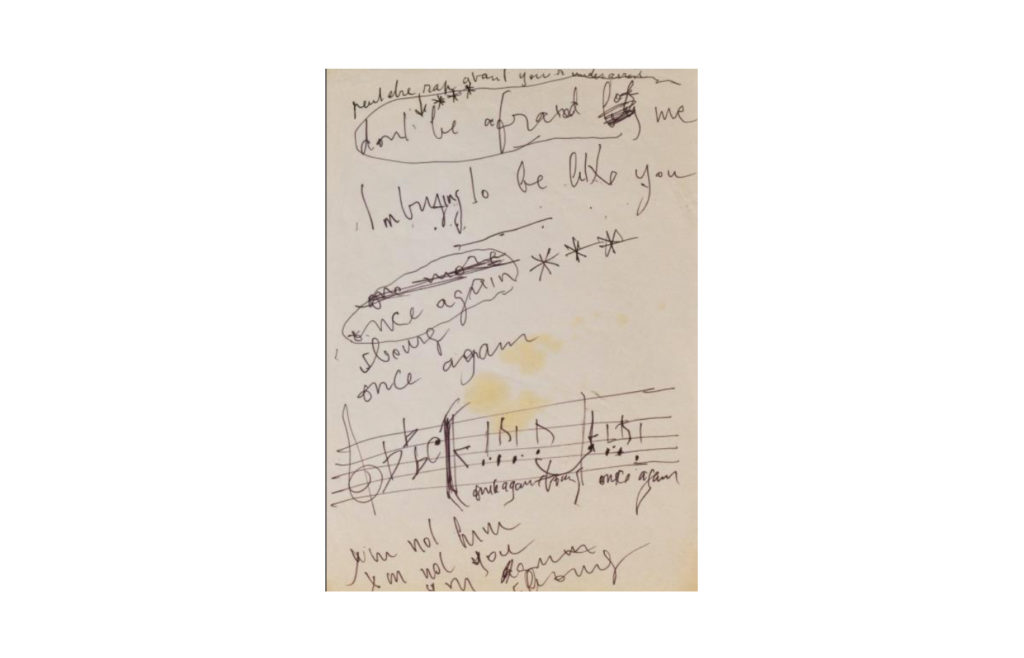 peut etre rap avant you're under arrest
dont be afraid of me
I'm trying to be like you
no more
once again
sbourg
once again
once again sbourg once again
I'm not him
I'm not you
I'm
sbourg